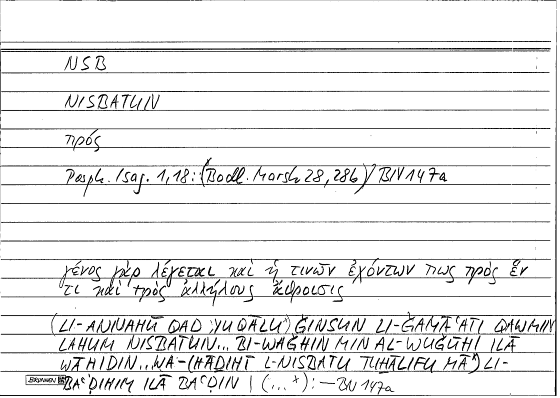 NSB
NISBATUN
πρός
Porph. Isag. 1,18: (Bodl. Marsh 28, 28b) / BN 147a
γένος γὰρ λέγεται καὶ ἡ τινῶν ἐχόντων πως πρὸς ἕν
τι καὶ πρὸς ἀλλήλους ἄθροισις
(LI-ANNAHŪ QAD YUQĀLU) ǦINSUN LI-ǦAMĀʿATI QAWMIN
LAHUM NISBATUN... BI-WAǦHIN MIN AL-WUǦŪHI ILĀ
WĀHIDIN... WA-(HĀḎIHĪ L-NISBATU TUḪĀLIFU MĀ) LI-
BAʿḌIHIM ILĀ BAʿḌIN | (...+): — BN 147a
BRUNNEN